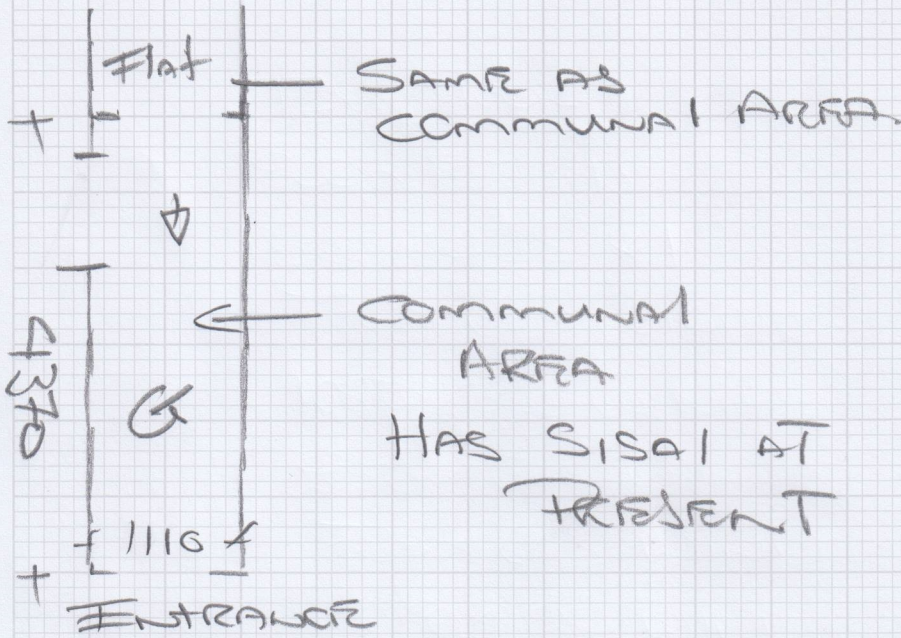 Flat
SAME AS
COMMUNAL AREA
COMMUNAL
AREA
4370
G
HAS SISAL AT
PRESENT
1110
ENTRANCE